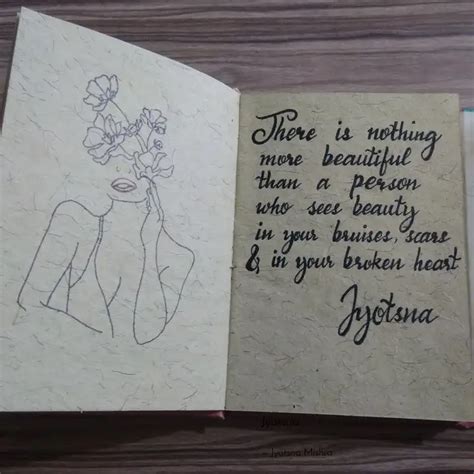 There is nothing
more beautiful
than a person
who sees beauty
in your bruises, scars
& in your broken heart
Jyotsna
Jyotsna
- Jyotsna Mishra